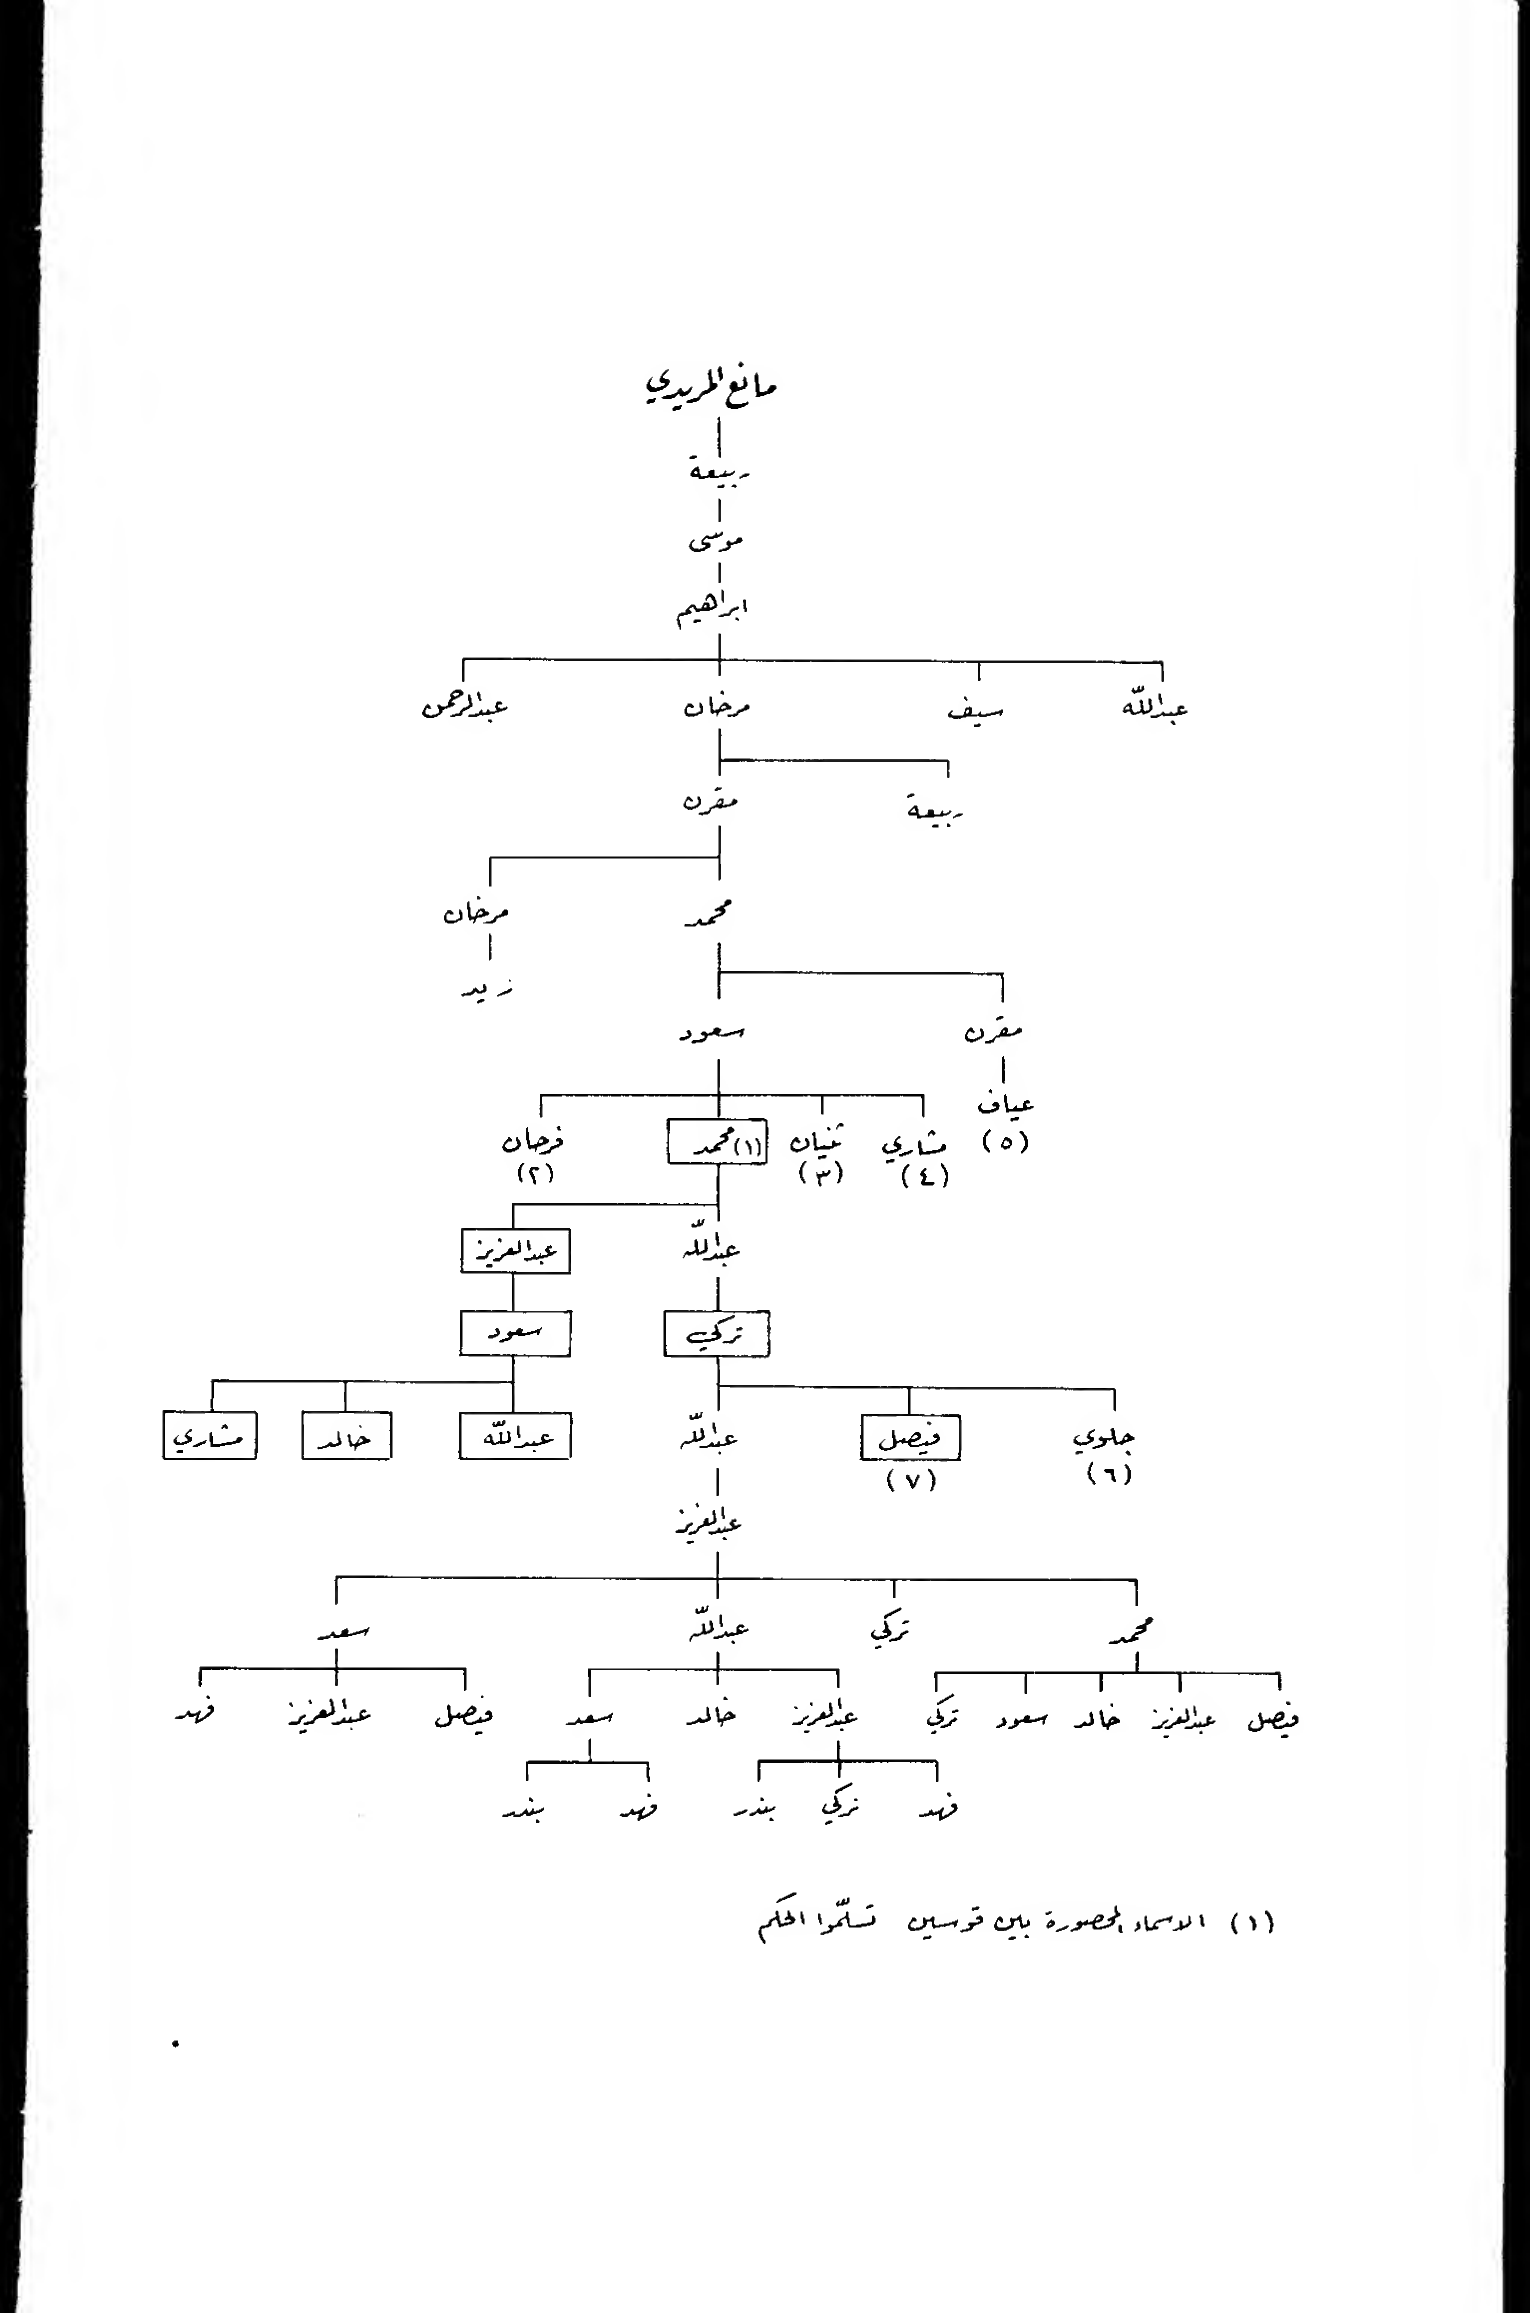 مانع المريدي
ربيعة
موسى
ابراهيم
عبدالله سيف مرخان عبدالرحمن
ربيعة مقرن
محمد مرخان
زيد
مقرن سعود
عياف (٥)
مشاري (٤) ثنيان (٣) (١) محمد فرحان (٢)
عبدالله عبدالعزيز
تركي سعود
جلوي (٦) فيصل (٧) عبدالله عبدالله خالد مشاري
عبدالعزيز
محمد تركي عبدالله سعد
فيصل عبدالعزيز خالد سعود تركي عبدالعزيز خالد سعد فيصل عبدالعزيز فهد
فهد تركي بندر فهد بندر
(١) الاسماء المحصورة بين قوسين تسلّموا الحكم